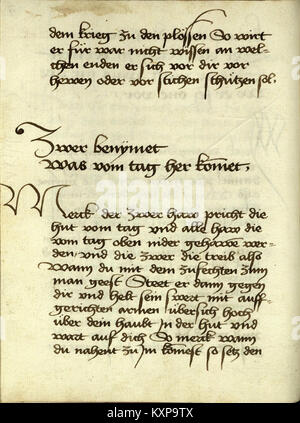 dem krieg zu den plössen So wirt
er für war nicht wissen an wel-
chen enden er sich vor dir vor
hewen oder vor stichen schützen sol.
Zwer benymet
Was vom tag her kömet.
Merck der zwer haw pricht die
hut vom tag und alle haw die
vom tag oben nider gehawe wer-
den und die zwer die treib also
Wann du mit dem zufechten zum
man geest Steet er dann gegen
dir und helt sein swert mit auff-
gerichten armen übersich hoch
über dein haubt In der hut und
wart auf dich So merck wann
du nahent zu Im kömest so setz den
alamy
Image ID: KXP9TX
www.alamy.com